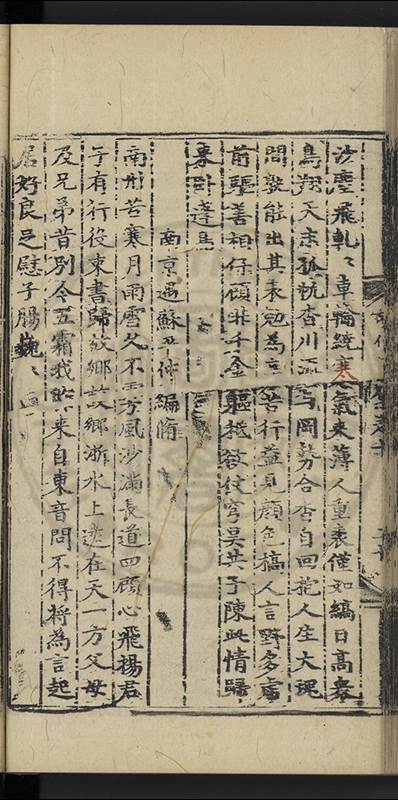 沙塵飛軋〻車輪繞寒氣来薄人重表僅如縞日高衆
鳥翔天末孤帆杳川流与岡勢合沓自回抱人生大瑰
間發能出其表勉為言苦行益見顔色槁人言野多虎
前驅善相保顧非千金軀抵欲仗穹昊共子陳此情歸
来卧蓬島
南京遇蘇平仲編脩
南州苦寒月雨雪久不方風沙滿長道四顧心飛揚君
子有行役束書歸故鄉故鄉浙水上邈在天一方父母
及兄弟昔別今五霜我昨来自東音問不得將為言起
居好良足慰子腸巍〻